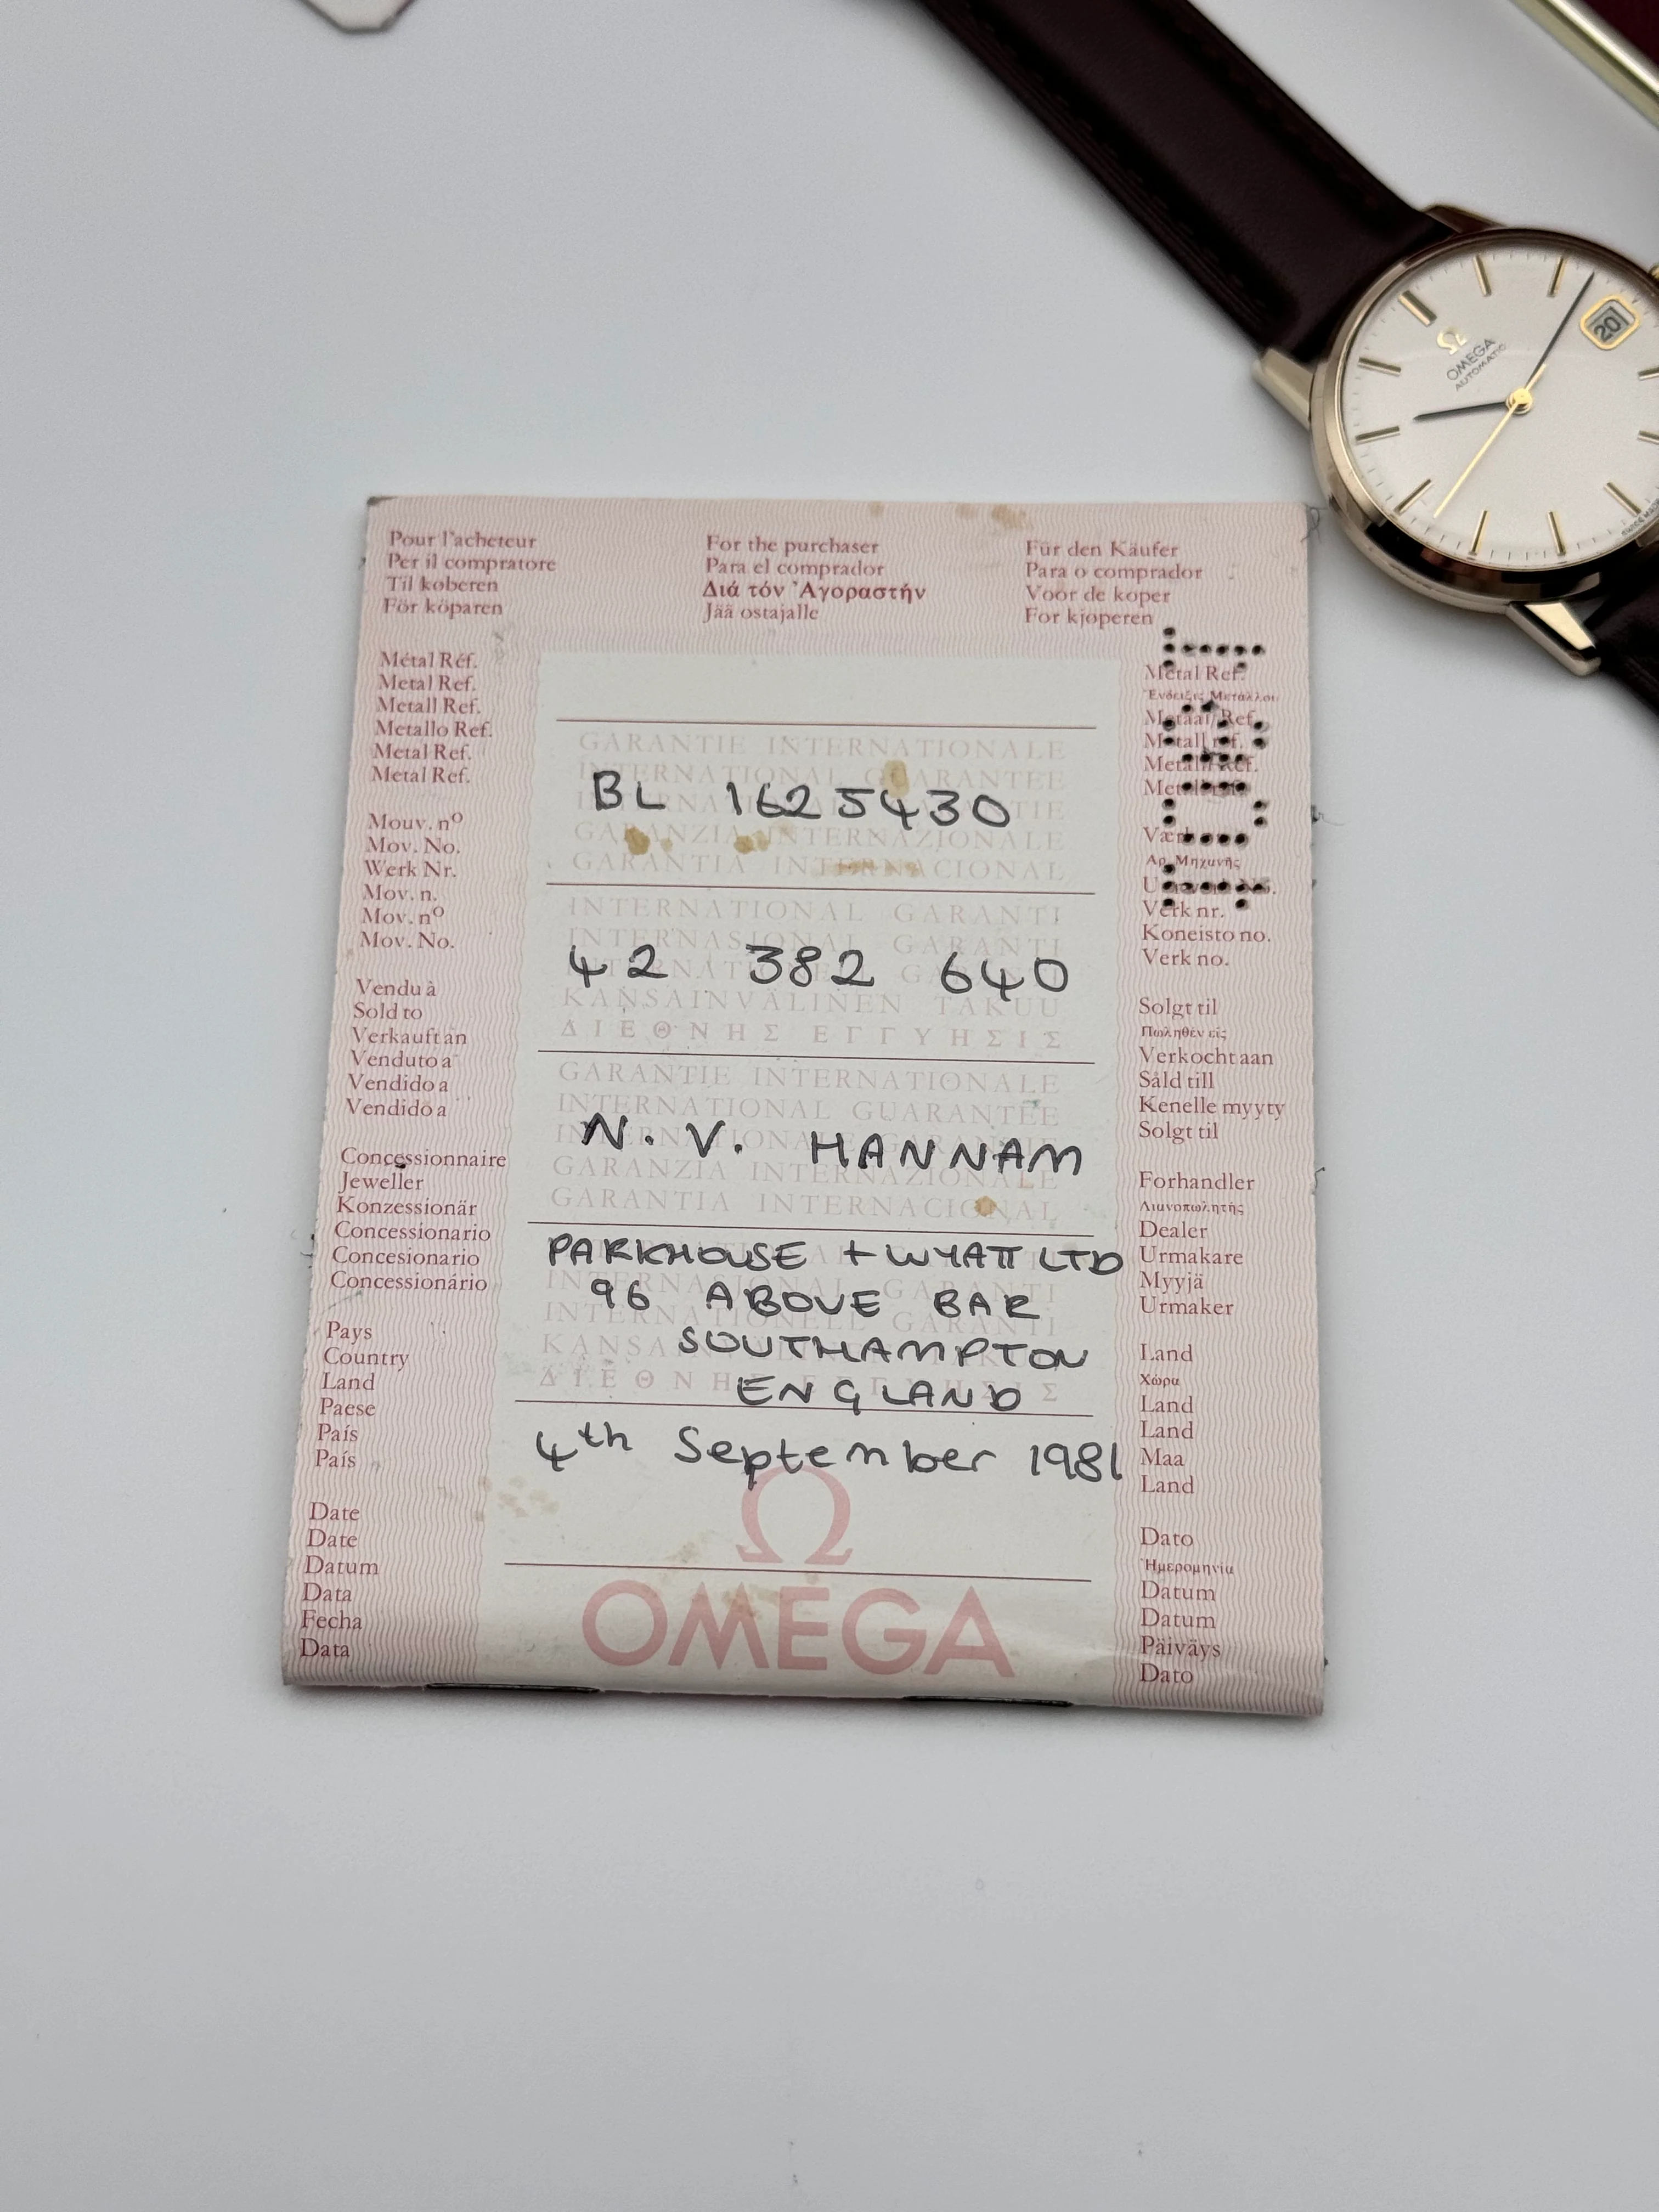 Pour l'acheteur For the purchaser Für den Käufer
Per il compratore Para el comprador Para o comprador
Til køberen Διά τόν Ἀγοραστήν Voor de koper
För köparen Jää ostajalle For kjøperen
Métal Réf.
Metal Ref.
Metall Ref.
Metallo Ref.
Metal Ref.
Metal Ref.
Mouv. nº
Mov. No.
Werk Nr.
Mov. n.
Mov. nº
Mov. No.
Vendu à
Sold to
Verkauft an
Venduto a
Vendido a
Vendido a
Concessionnaire
Jeweller
Konzessionär
Concessionario
Concesionario
Concessionário
Pays
Country
Land
Paese
País
País
Date
Date
Datum
Data
Fecha
Data
GARANTIE INTERNATIONALE
INTERNATIONAL GUARANTEE
BL 1625430
GARANZIA INTERNAZIONALE
GARANTIA INTERNACIONAL
INTERNATIONAL GARANTI
INTERNASJONAL GARANTI
42 382 640
KANSAINVÄLINEN TAKUU
ΔΙΕΘΝΗΣ ΕΓΓΥΗΣΙΣ
GARANTIE INTERNATIONALE
INTERNATIONAL GUARANTEE
N. V. HANNAM
GARANZIA INTERNAZIONALE
GARANTIA INTERNACIONAL
PARKHOUSE + WYATT LTD
96 ABOVE BAR
SOUTHAMPTON
ENGLAND
4th September 1981
Ω
OMEGA
Metal Ref.
Ἐνδειξις Μετάλλου
Metaal Ref.
Metall ref.
Αρ. Μηχανῆς
Verk nr.
Koneisto no.
Verk no.
Solgt til
Πωληθέν είς
Verkocht aan
Såld till
Kenelle myyty
Solgt til
Forhandler
Λιανοπωλητής
Dealer
Urmakare
Myyjä
Urmaker
Land
Χώρα
Land
Land
Maa
Land
Dato
Ἡμερομηνία
Datum
Datum
Päiväys
Dato
Ω
OMEGA
AUTOMATIC
20